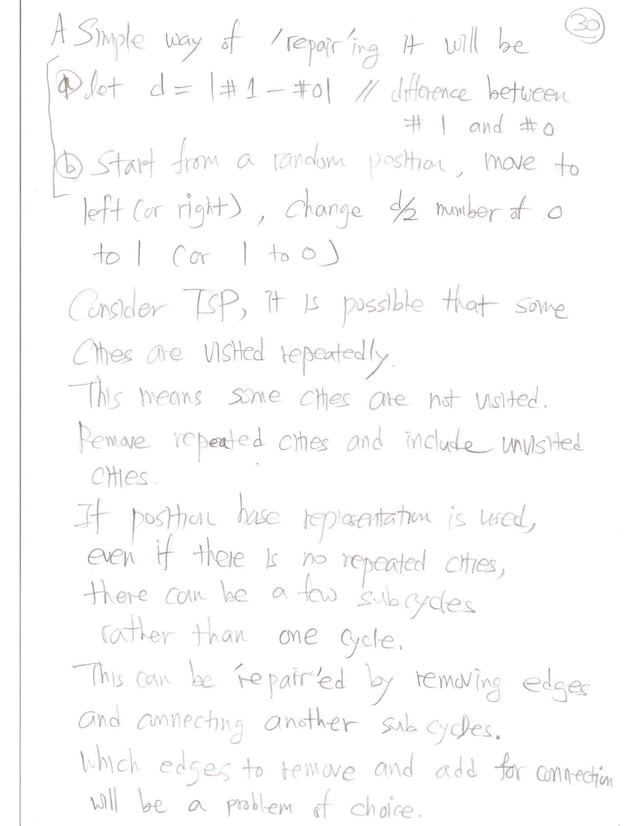 30
A Simple way of 'repair'ing it will be
ⓐ let d = |#1 - #0| // difference between
#1 and #0
ⓑ Start from a random position, move to
left (or right), change d/2 number of 0
to 1 (or 1 to 0)
Consider TSP, it is possible that some
cities are visited repeatedly.
This means some cities are not visited.
Remove repeated cities and include unvisited
cities.
If position base representation is used,
even if there is no repeated cities,
there can be a few subcycles
rather than one cycle.
This can be 'repair'ed by removing edges
and connecting another sub cycles.
Which edges to remove and add for connection
will be a problem of choice.